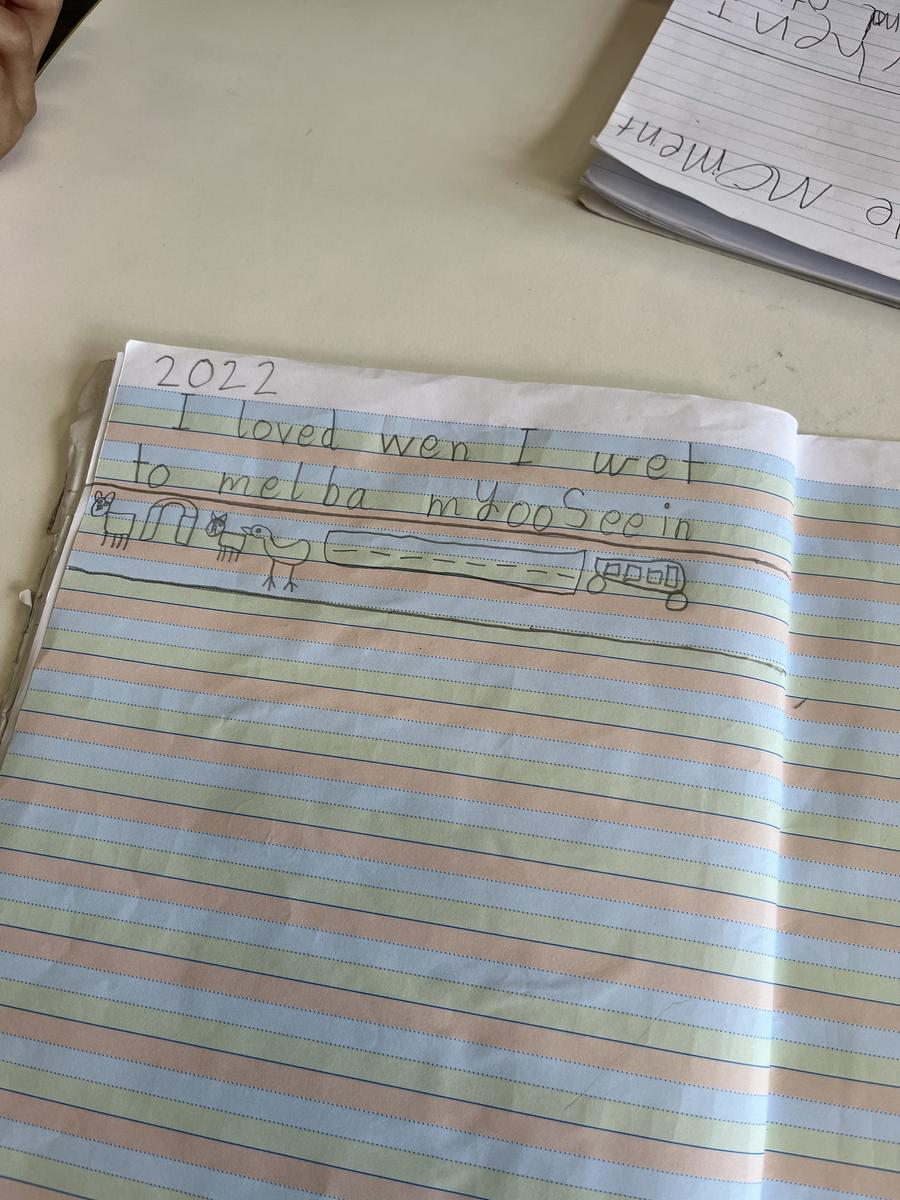 2022
I loved wen I wet
to melba myooSeein
hen I
le MOment